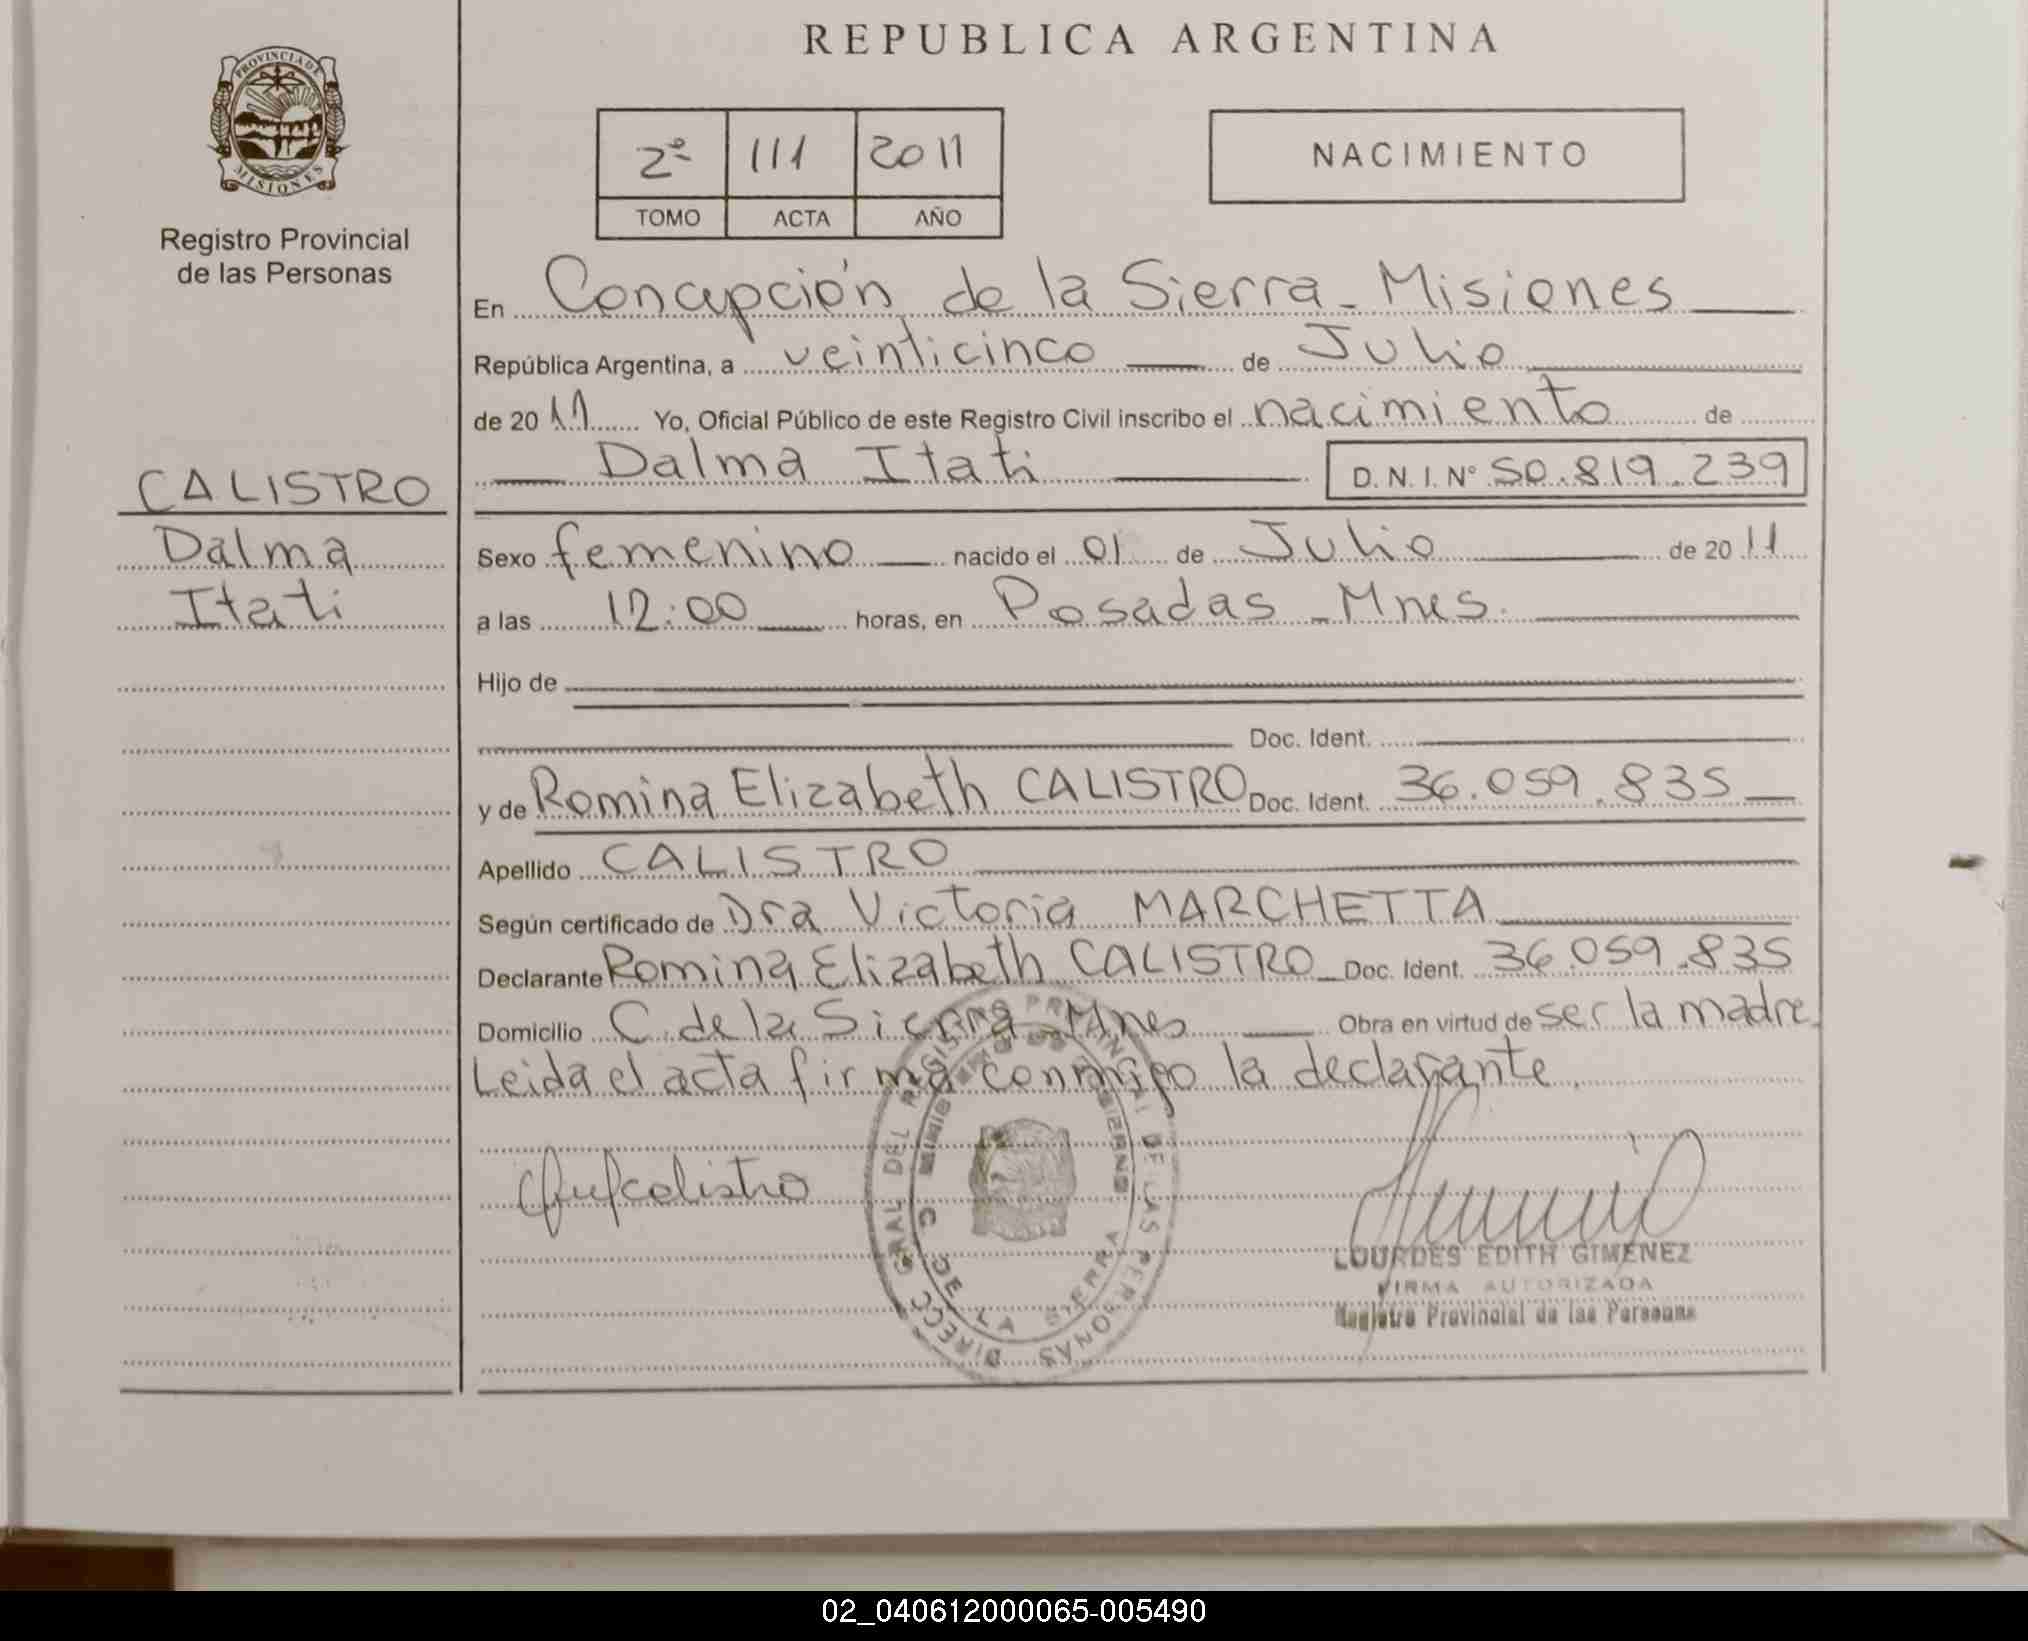 REPUBLICA ARGENTINA
PROVINCIA DE
MISIONES
Registro Provincial
de las Personas
2º 111 2011
TOMO ACTA AÑO
NACIMIENTO
En Concepción de la Sierra - Misiones
República Argentina, a veinticinco de Julio
de 2011 Yo, Oficial Público de este Registro Civil inscribo el nacimiento de
Dalma Itati D.N.I.Nº 50.819.239
CALISTRO
Dalma
Itati
Sexo femenino nacido el 01 de Julio de 2011
a las 12:00 horas, en Posadas - Mnes.
Hijo de
Doc. Ident.
y de Romina Elizabeth CALISTRO Doc. Ident. 36.059.835
Apellido CALISTRO
Según certificado de Dra Victoria MARCHETTA
Declarante Romina Elizabeth CALISTRO Doc. Ident. 36.059.835
Domicilio C. de la Sierra - Mnes Obra en virtud de ser la madre.
Leida el acta firma conmigo la declarante.
DIRECC. GRAL DEL REGISTRO PROVINCIAL DE LAS PERSONAS
C. DE LA SIERRA
LOURDES EDITH GIMENEZ
FIRMA AUTORIZADA
Registro Provincial de las Personas
02_040612000065-005490